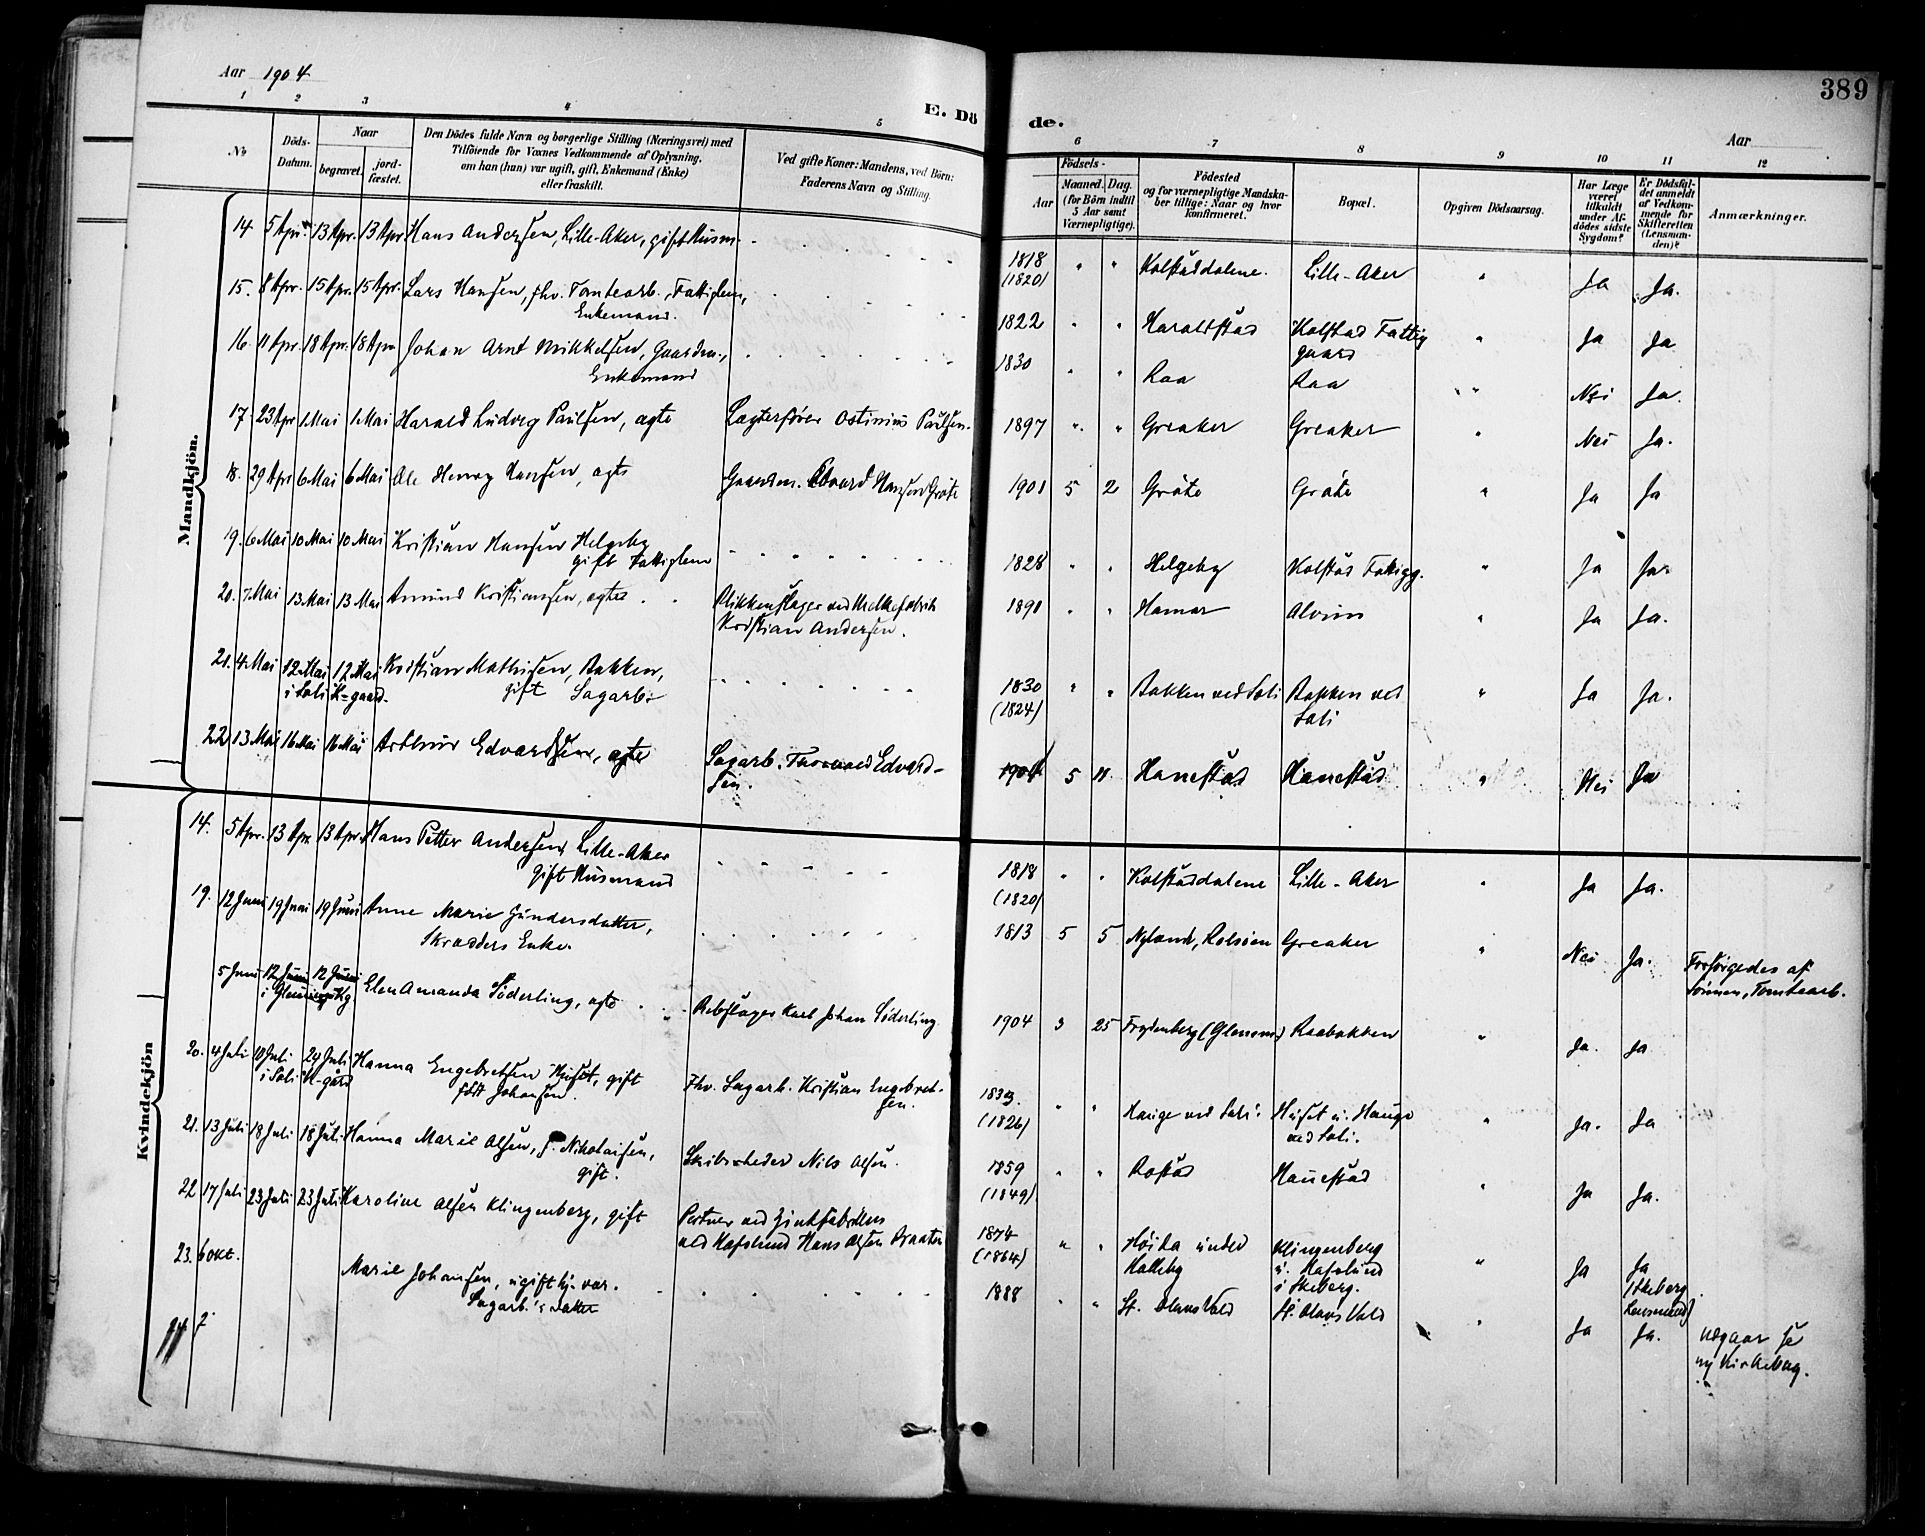 Aar 1904
389
E. Dö de.
Aar
1 2 3 4 5 6 7 8 9 10 11 12
No
Döds-Datum.
Naar
begravet.
jord-fæstet.
Den Dödes fulde Navn og borgerlige Stilling (Næringsvei) med
Tilföiende for Voxnes Vedkommende af Oplysning,
om han (hun) var ugift, gift, Enkemand (Enke)
eller fraskilt.
Ved gifte Koner: Mandens, ved Börn:
Faderens Navn og Stilling.
Födsels-
Aar
Maaned. Dag.
(for Börn indtil
5 Aar samt
Værnepligtige).
Födested
og for værnepligtige Mandska-
ber tillige: Naar og hvor
konfirmeret.
Bopæl.
Opgiven Dödsaarsag.
Har Læge
været
tilkaldt
under Af-
dödes sidste
Sygdom?
Er Dödsfal-
det anmeldt
af Vedkom-
mende for
Skifteretten
(Lensman-
den)?
Anmærkninger.
Mandkjön.
14 5 Apr. 13 Apr. 13 Apr Hans Andersen, Lille-Aker, gift Husm. 1818 (1820) " " Kolstaddalene. Lille-Aker " Ja Ja.
15. 8 Apr. 15 Apr. 15 Apr. Lars Hansen, fhv. Tomtearb., Fattiglem,
Enkemand. 1822 " " Haraldstad Kolstad Fattig
gaard " Ja Ja
16. 11 Apr. 18 Apr. 18 Apr Johan Arnt Mikkelsen, Gaardm.,
Enkemand 1830 " " Raa Raa " Nei Ja.
17. 23 Apr 1 Mai 1 Mai Harald Ludvig Paulsen, ægte Lægterfører Ostinius Paulsen. 1897 " " Greaker Greaker " Nei Ja.
18. 29 Apr 6 Mai 6 Mai Ole Henry Hansen, ægte Gaardm. Edvard Hansen Gråte 1901 5 2 Gråte Gråte " Ja Ja
19. 6 Mai 10 Mai 10 Mai Kristian Hansen Helgeby
gift Fattiglem 1828 " " Helgeby Kolstad Fattigg. " Ja Ja
20. 7 Mai 13 Mai 13 Mai Amund Kristiansen, ægte Blikkenslager ved Melkefabrik
Kristian Andersen. 1891 " " Hamar Alvim " Ja Ja.
21. 4 Mai 12 Mai 12 Mai Kristian Mathisen, Bakken,
i Soli K-gaard. gift Sagarb. 1830 (1824) " " Bakken ved Soli Bakken ved
Soli " Ja Ja.
22 13 Mai 16 Mai 16 Mai Arthur Edvardsen, ægte Sagarb. Thorvald Edvard-
sen. 1904 5 11 Hanestad Hanestad " Nei Ja
Kvindekjön
14. 5 Apr. 13 Apr 13 Apr. Hans Petter Andersen, Lille-Aker
gift Husmand 1818 (1820) " " Kolstaddalene Lille-Aker " Ja Ja.
19. 12 Juni 19 Juni 19 Juni Anne Marie Gundersdatter,
Skrædders Enke. 1813 5 5 Nyland, Rolsøen Greaker " Nei Ja. Forsørgedes af
Sønnen, Tomtearb.
5 Juni 12 Juni 12 Juni Elen Amanda Söderling, ægte Rebslager Karl Johan Söderling
i Glemminge Kg 1904 3 25 Frydenberg (Glemm.) Raabakken " Ja. Ja
20. 4 Juli 10 Juli 24 Juli Hanna Engebretsen Huset, gift
i Soli K-gård født Johansen. Fhv. Sagarb. Kristian Engebret-
sen. 1833 (1826) " " Hauge ved Soli Huset u. Hauge
ved Soli. " Ja. Ja
21. 13 Juli 18 Juli 18 Juli Hanna Marie Olsen, f. Nikolaisen,
gift. Skibsreder Nils Olsen. 1859 (1849) " " Rostad Hanestad " Ja Ja.
22 17 Juli 23 Juli 23 Juli Karoline Olsen Klingenberg, gift Portner ved Zinkfabriken
ved Hafslund Hans Olsen Braaten 1874 (1864) " " Høida under
Halleby Klingenberg
u. Hafslund
i Skeberg. " Ja Ja
(Skeberg
Lensmand)
23. 6 Okt. Marie Johansen, ugift hjv.
Sagarb.'s datter 1888 " " St. Olavs Vold St. Olavs Vold " Ja Ja. Udgaar se
ny Kirkebog.
24 7